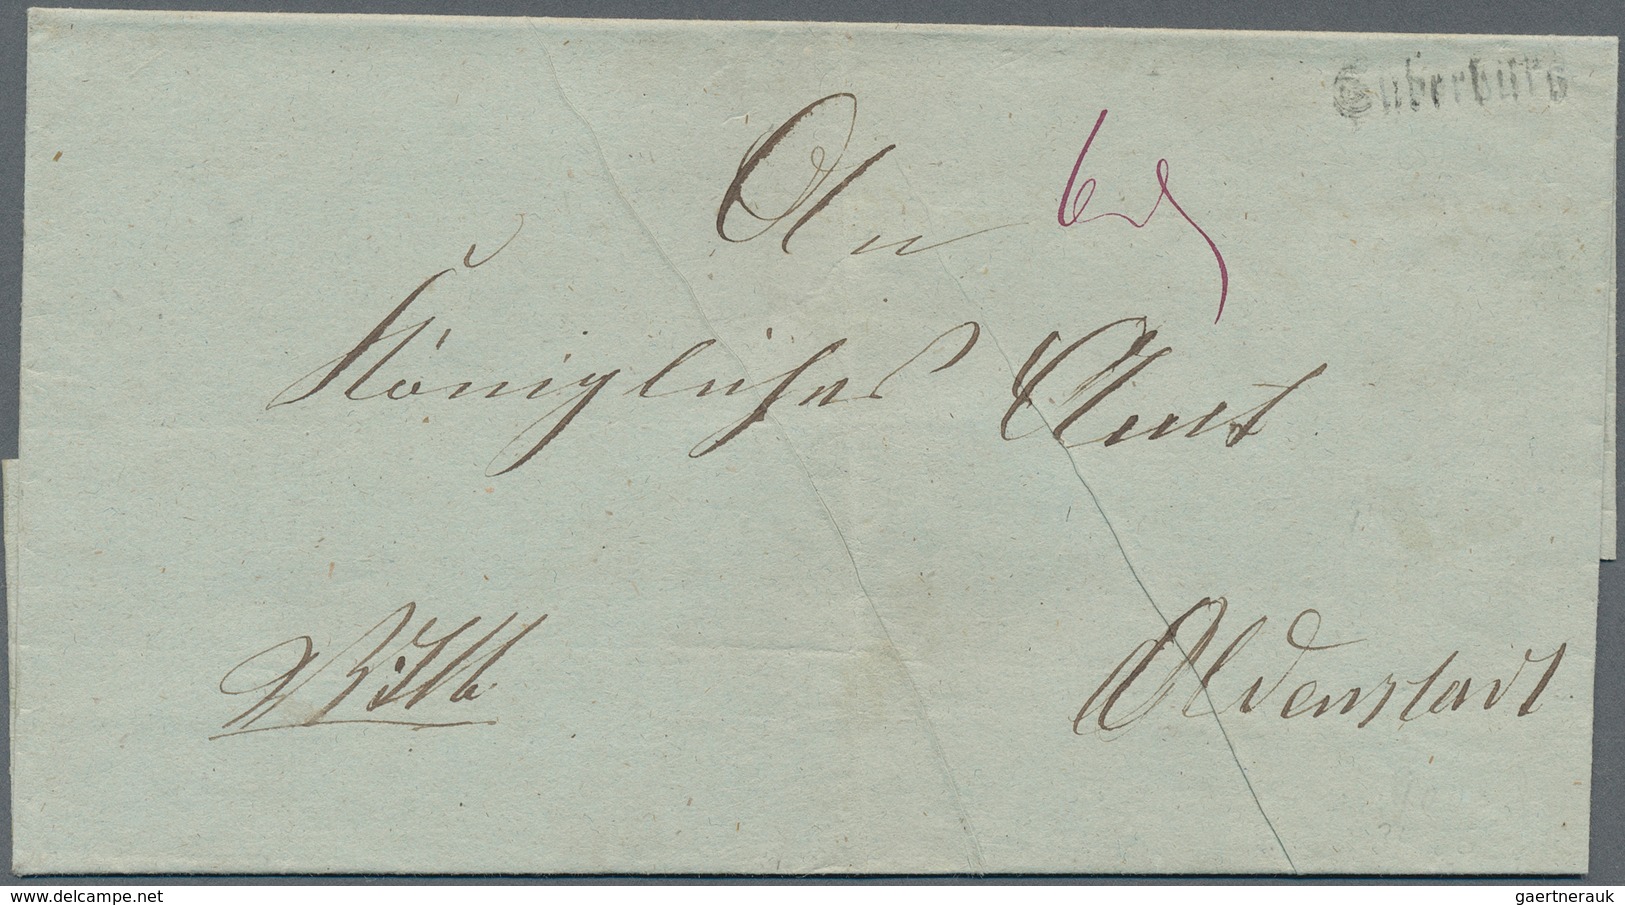 Suderburg
An
Königliches Amt
Oldenstadt
www.delcampe.net
gaertnerauk